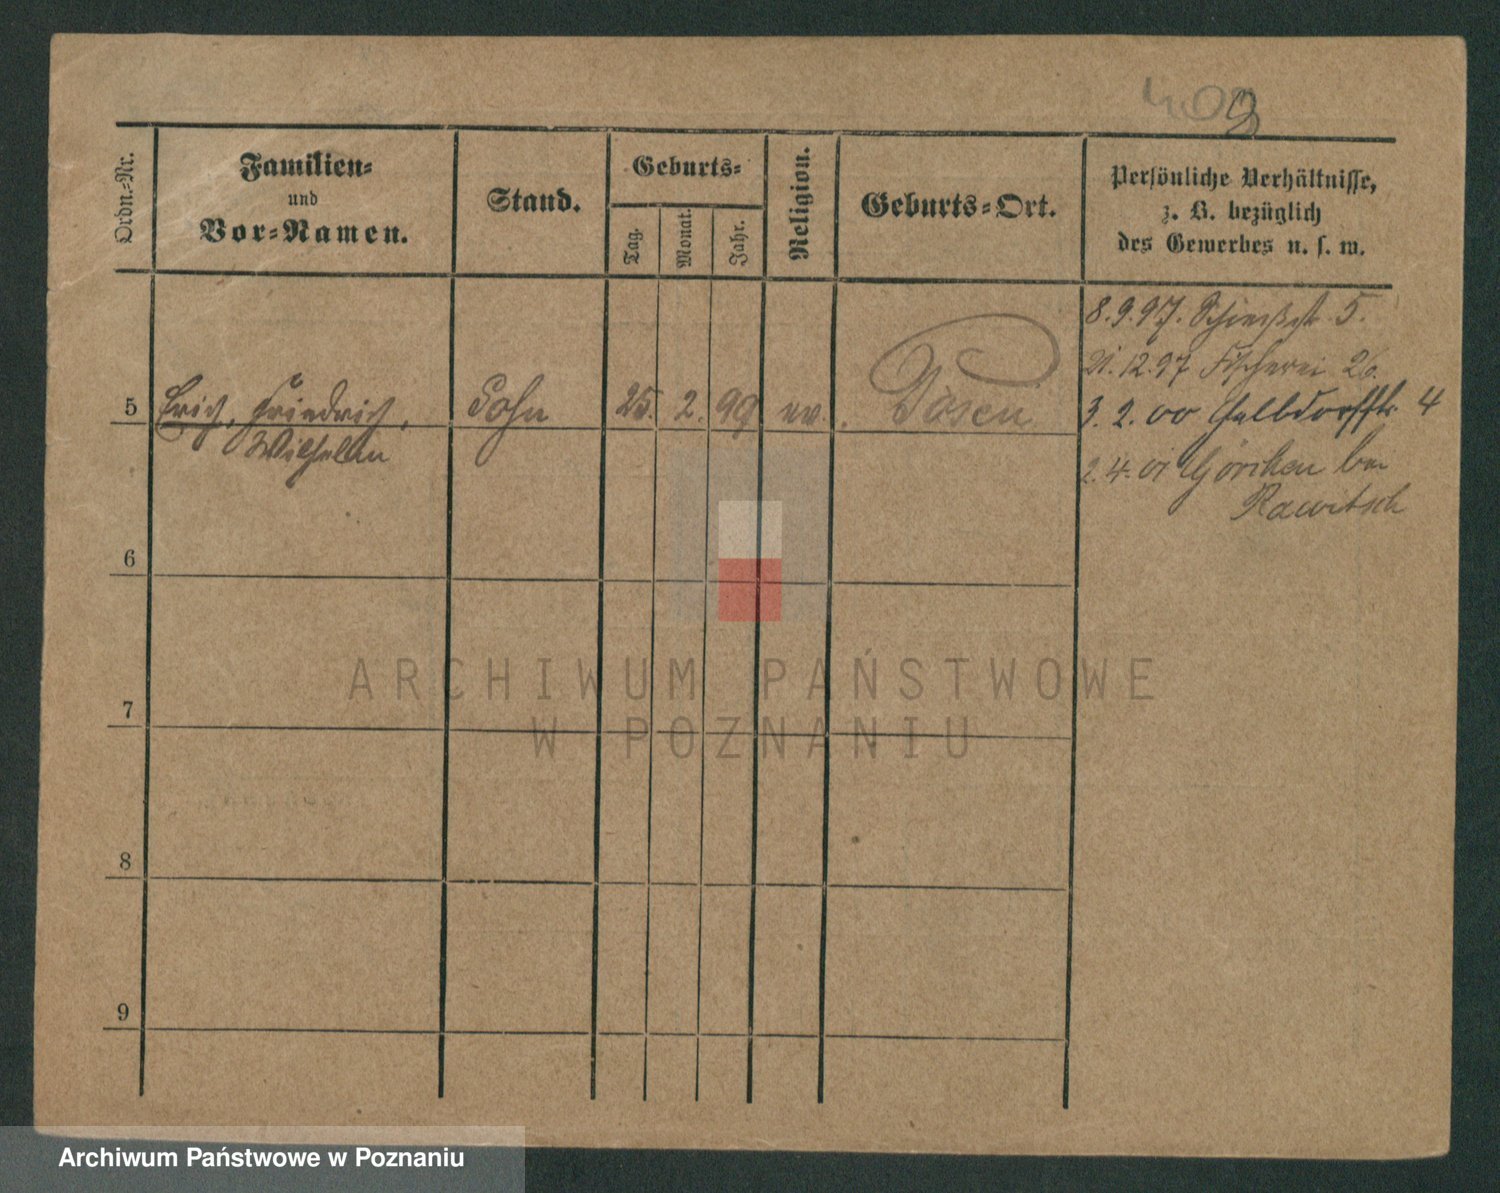 409
Ordn.-Nr.
Familien-
und
Vor-Namen.
Stand.
Geburts-
Tag.
Monat.
Jahr.
Religion.
Geburts-Ort.
Persönliche Verhältnisse,
z. B. bezüglich
des Gewerbes u. s. w.
8.9.97. Schießstr 5.
21.12.97 Fischerei 26.
5 Erich, Friedrich, Sohn 25. 2. 99 ev. Posen
Wilhelm
3.2.00 Halbdorfstr. 4
2.4.01 bei
Rawitsch
6
7
8
9
ARCHIWUM PAŃSTWOWE
W POZNANIU
Archiwum Państwowe w Poznaniu